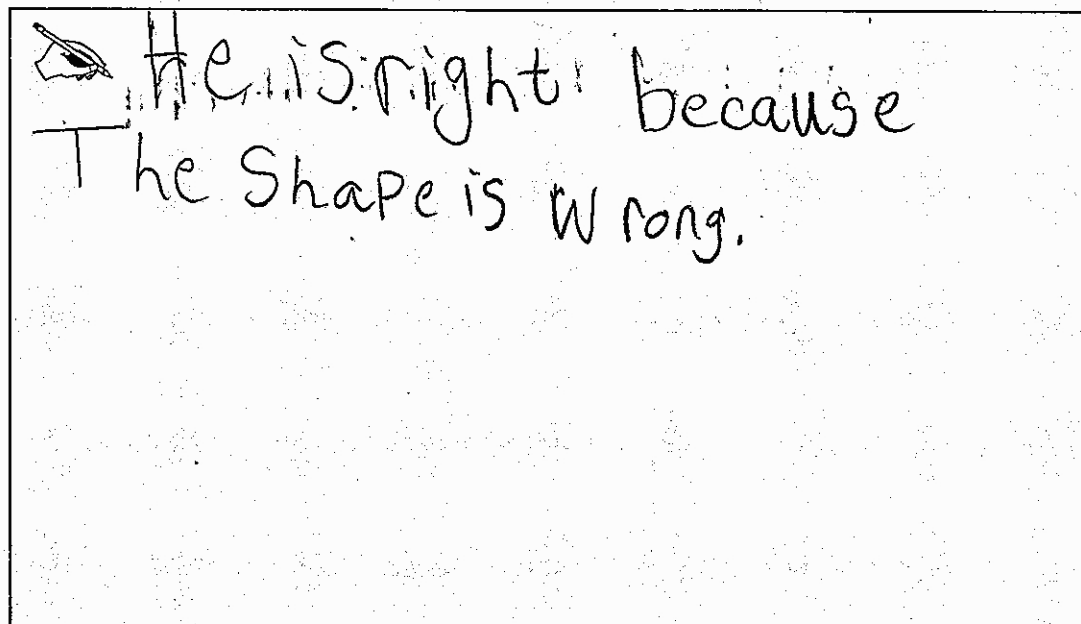 He is right because
The Shape is wrong.